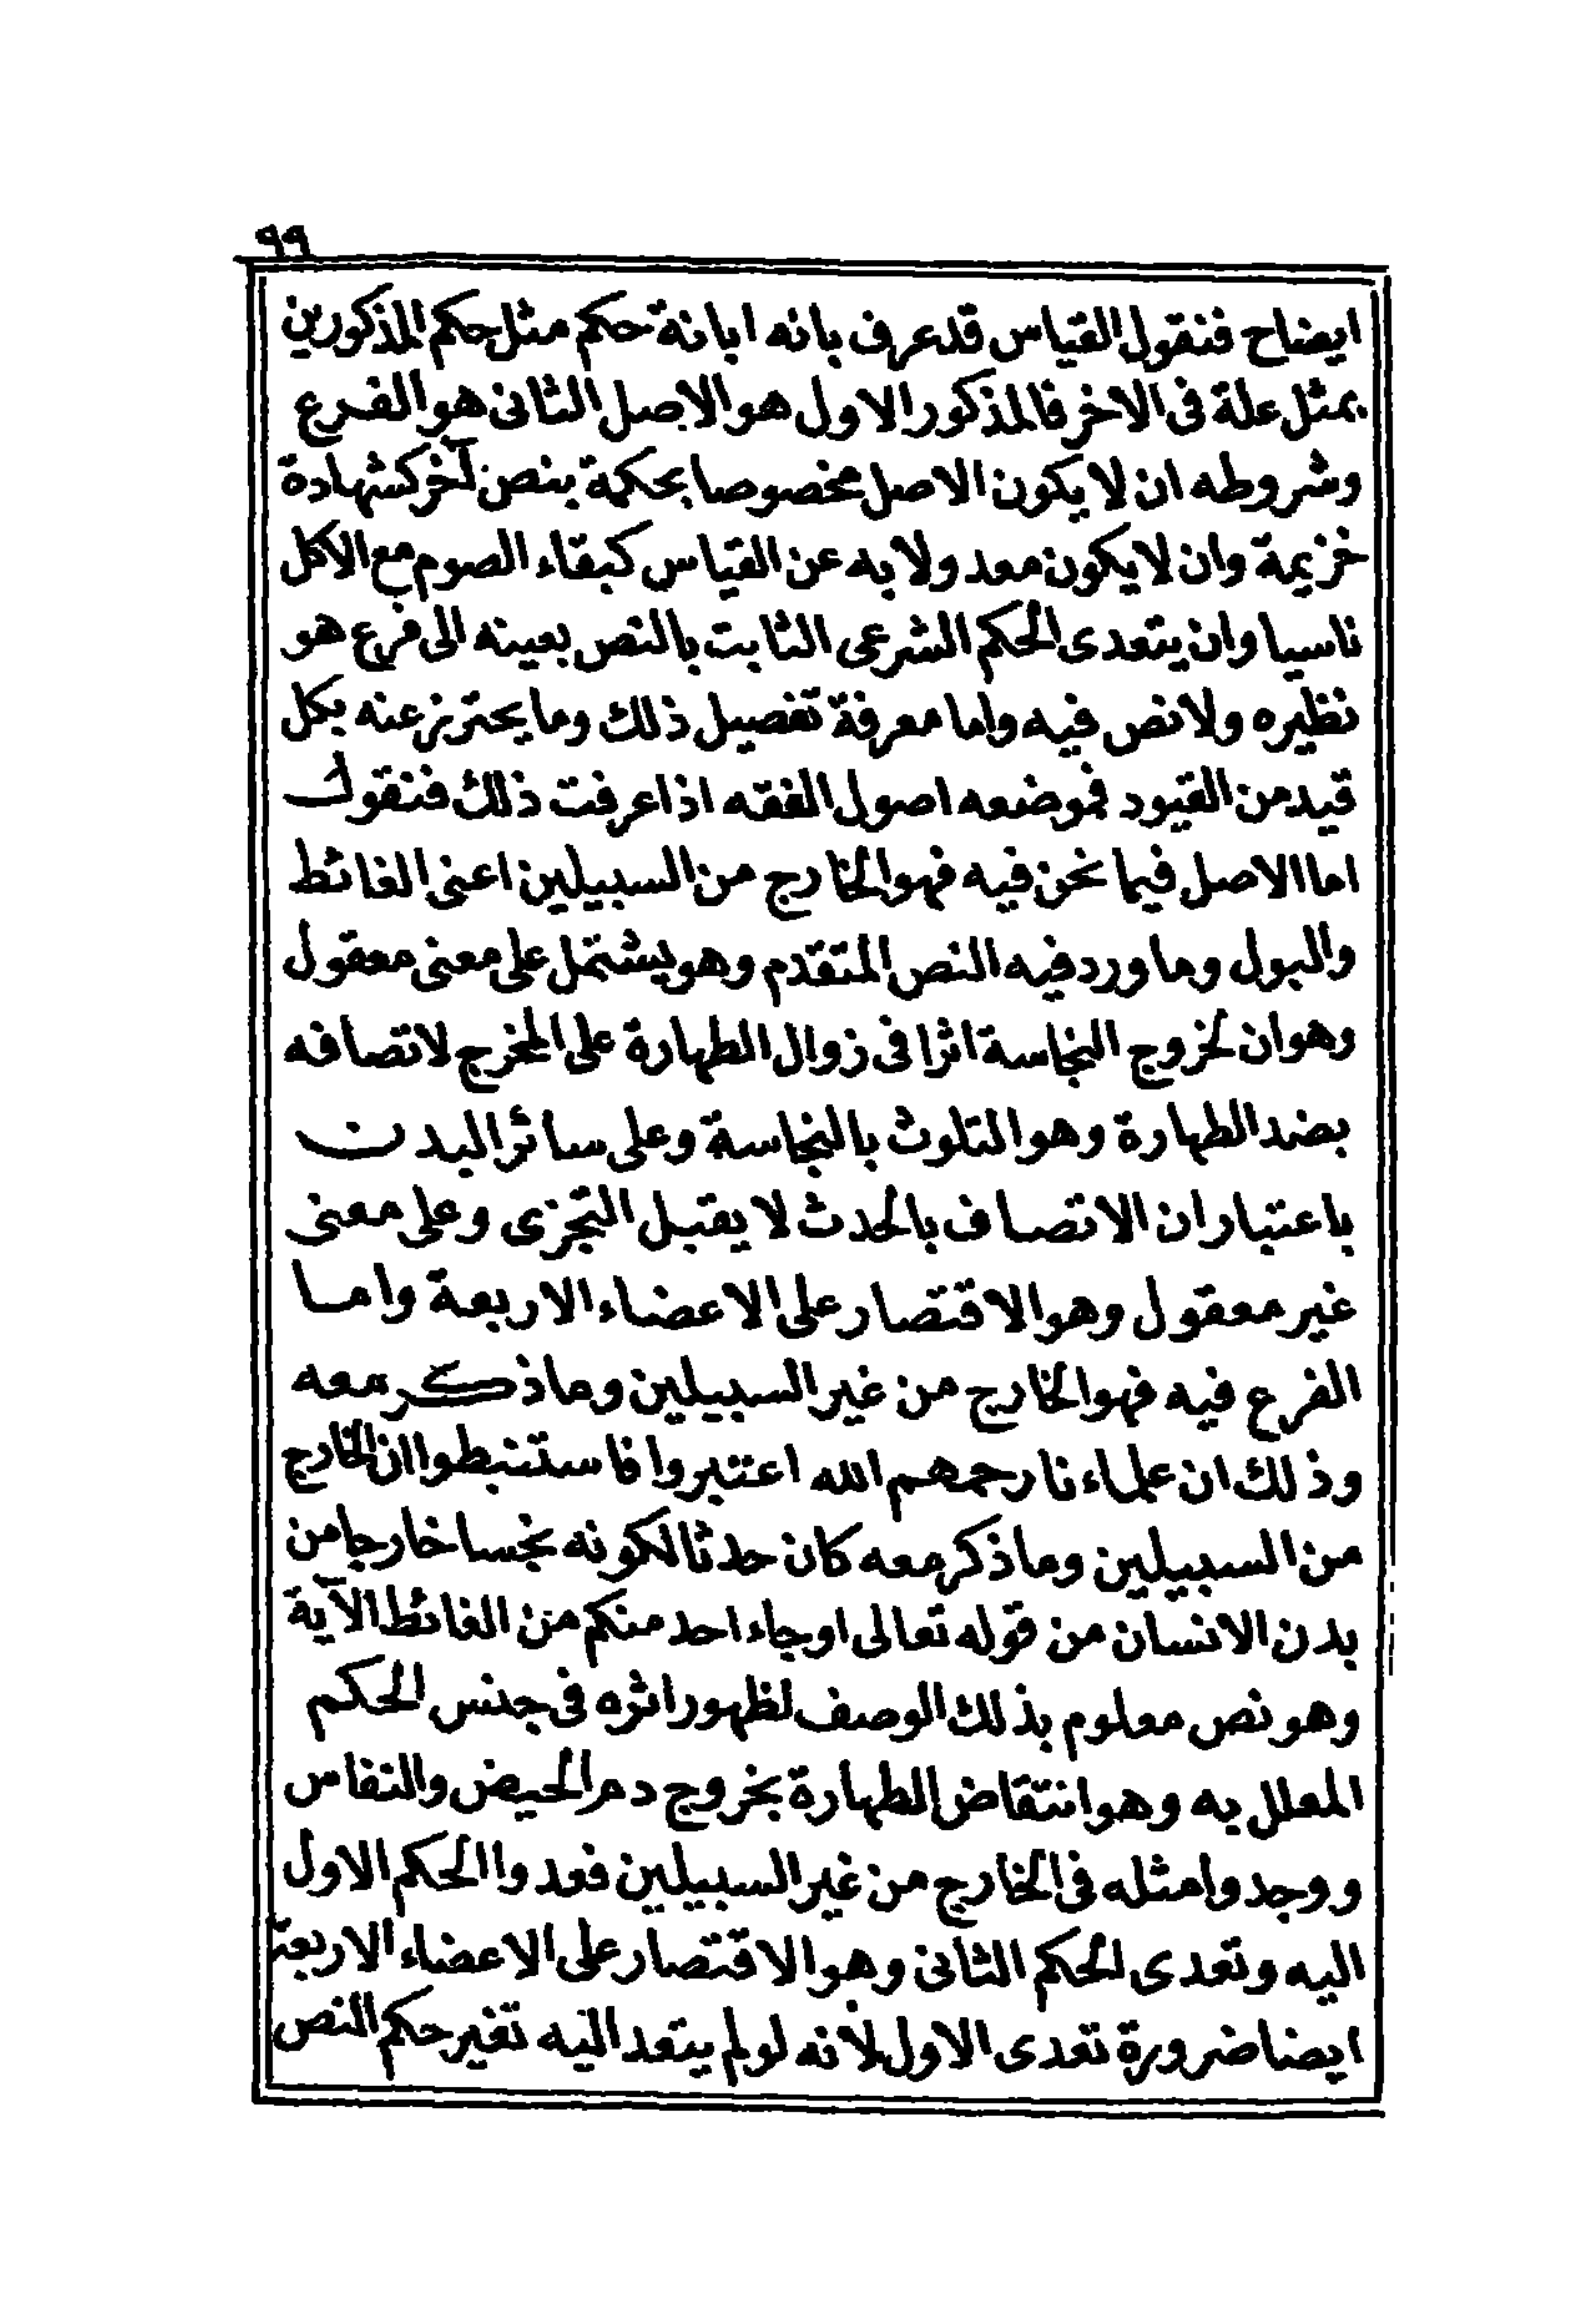 ٩٩
ايضاح فنقول القياس قد عرف بانه ابانة حكم مثل حكم المذكورين
بمثل علة فى الاخر فالمذكور الاول هو الاصل الثانى هو الفرع
وشروطه ان لا يكون الاصل مخصوصا بحكمة بنص آخر كشهادة
خزيمة وان لا يكون معد ولا به عن القياس كبقاء الصوم مع الاكل
ناسيا وان يتعدى الحكم الشرعى الثابت بالنص بعينه الى فرع هو
نظيره ولا نص فيه واما معرفة تفصيل ذلك وما يحترز عنه بكل
قيد من القيود فموضعه اصول الفقه اذا عرفت ذلك فنقول
اما الاصل فيما نحن فيه فهو الخارج من السبيلين اعنى الغائط
والبول وما ورد فيه النص المتقدم وهو يشتمل على معنى معقول
وهو ان لخروج النجاسة اثرا فى زوال الطهارة على المخرج لاتصافه
بضد الطهارة وهو التلوث بالنجاسة وعلى سائر البدن
باعتبار ان الاتصاف بالحدث لا يقبل التجزى وعلى معنى
غير معقول وهو الاقتصار على الاعضاء الاربعة واما
الفرع فيه فهو الخارج من غير السبيلين وما ذكر معه
وذلك ان علماء نا رحمهم الله اعتبروا فاستنبطوا ان الخارج
من السبيلين وما ذكر معه كان حدثا لكونه نجسا خارجا من
بدن الانسان من قوله تعالى او جاء احد منكم من الغائط الآية
وهو نص معلوم بذلك الوصف لظهور اثره فى جنس الحكم
المعلل به وهو انتقاض الطهارة بخروج دم الحيض والنفاس
ووجدوا مثله فى الخارج من غير السبيلين فعدوا الحكم الاول
اليه وتعدى الحكم الثانى وهو الاقتصار على الاعضاء الاربعة
ايضا ضرورة تعدى الاول لانه لو لم يتعد اليه تغير حكم النص